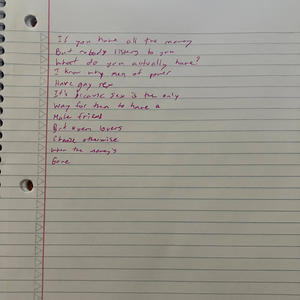 If you have all the money
But nobody listens to you
What do you actually have?
I know why men of power
Have gay sex
It's because sex is the only
Way for them to have a
Male friend
But even lovers
Choose otherwise
When the money's
Gone